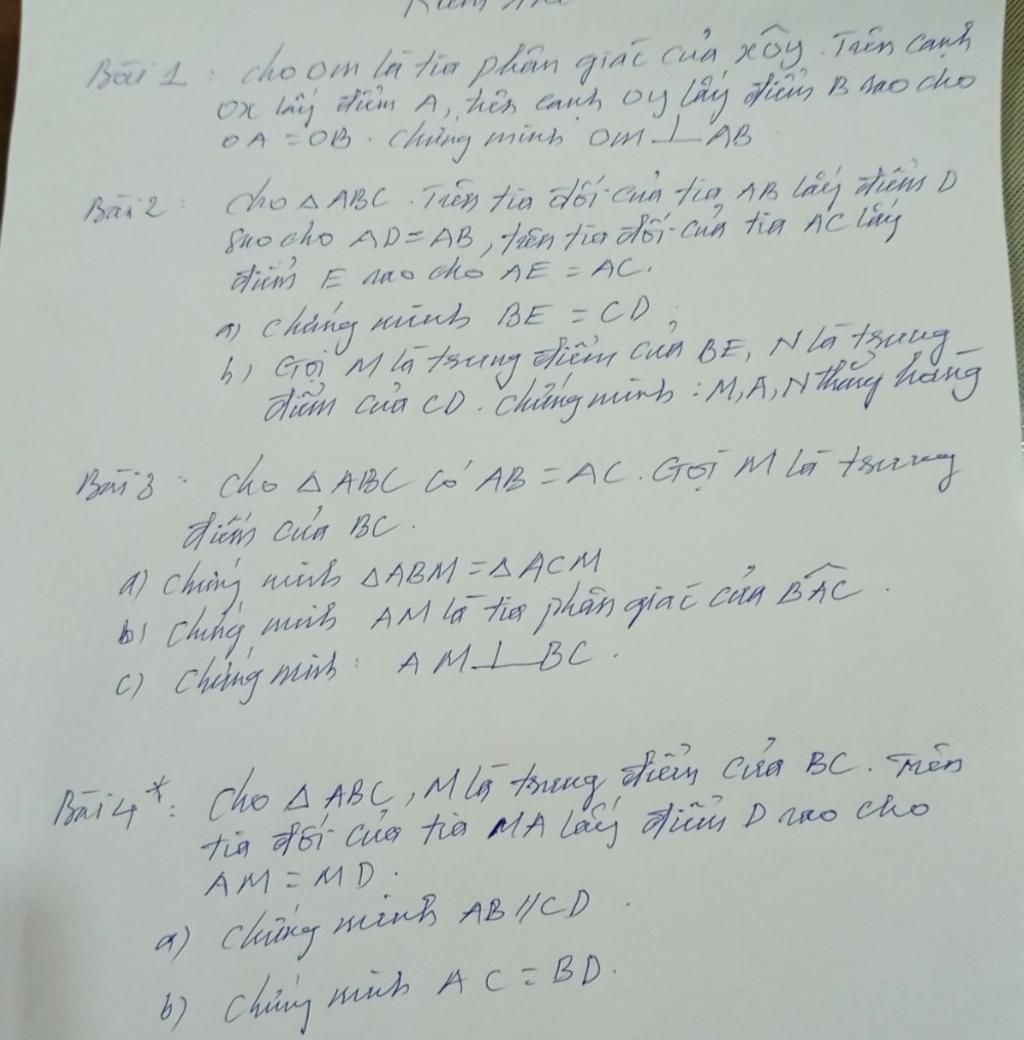 Bài 1 : cho om là tia phân giác của xôy. Trên cạnh
ox lấy điểm A, trên cạnh oy lấy điểm B sao cho
OA = OB. Chứng minh om ⊥ AB
Bài 2 : cho △ ABC. Trên tia đối của tia AB lấy điểm D
sao cho AD = AB, trên tia đối của tia AC lấy
điểm E sao cho AE = AC.
a) chứng minh BE = CD.
b) Gọi M là trung điểm của BE, N là trung
điểm của CD. chứng minh : M, A, N thẳng hàng
Bài 3 : cho △ ABC có AB = AC. Gọi M là trung
điểm của BC.
a) chứng minh △ABM = △ACM
b) chứng minh AM là tia phân giác của BÂC.
c) chứng minh : AM ⊥ BC.
Bài 4* : cho △ ABC, M là trung điểm của BC. Trên
tia đối của tia MA lấy điểm D sao cho
AM = MD.
a) chứng minh AB // CD.
b) chứng minh AC = BD.